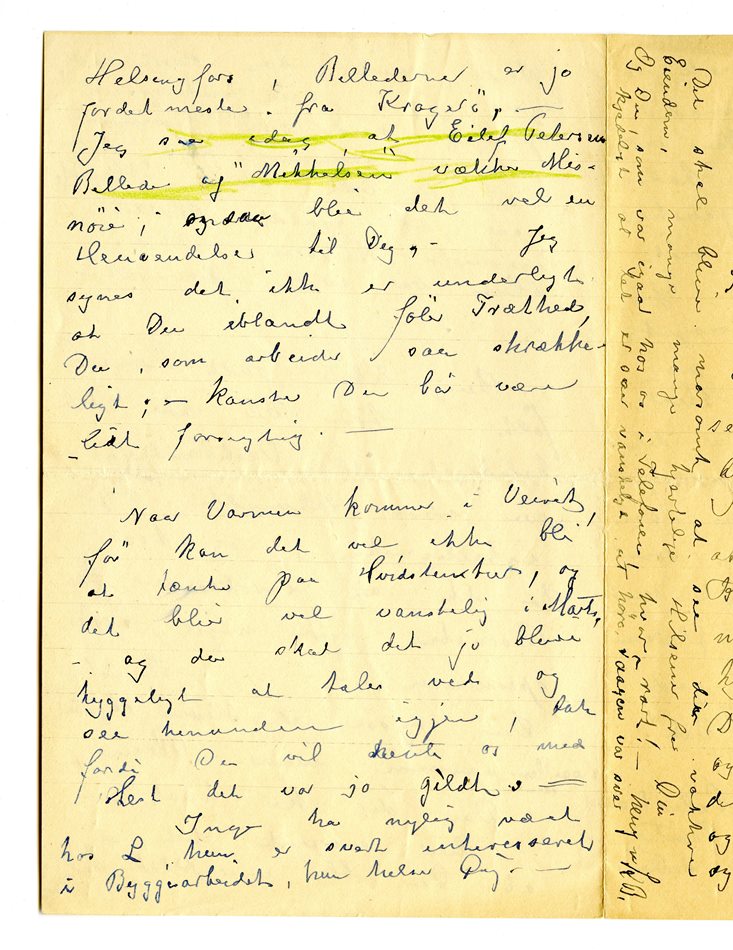 Helsingfors, Billederne er jo
fordetmeste fra Kragerö, —
Jeg saa idag, at Eilif Petersens
Billede og "Mikkelsen" vække Mis-
nöie, blir det vel en
Henvendelse til Deg, — Jeg
synes det ikke er underligt
at Du iblandt föler Træthed,
Du, som arbeider saa skrække-
ligt; — kanske Du bör være
lidt forsigtig. —
Naar Varmen kommer i Veiret,
för kan det vel ikke bli
at tænke paa Hvidstentur, og
det blir vel vanskelig i Marts,
— og da skal det jo bleve
hyggeligt at tales ved og
see hinanden igjen, tak
fordi Du vil hente os med
Hest det var jo gildt, —
Inge ha nylig været
hos L hun er svært interesseret
i Byggearbeidet, hun helser Dig. —
Det skal blive morsomt at see din vakkre
Eiendom, mange mange hjertelige Hilsener fra Din
Og Du, som var igaar hos os i Telefonen! hvor rart! —
kjedeligt at det er saa vanskeligt at höre, Vaagen var svær